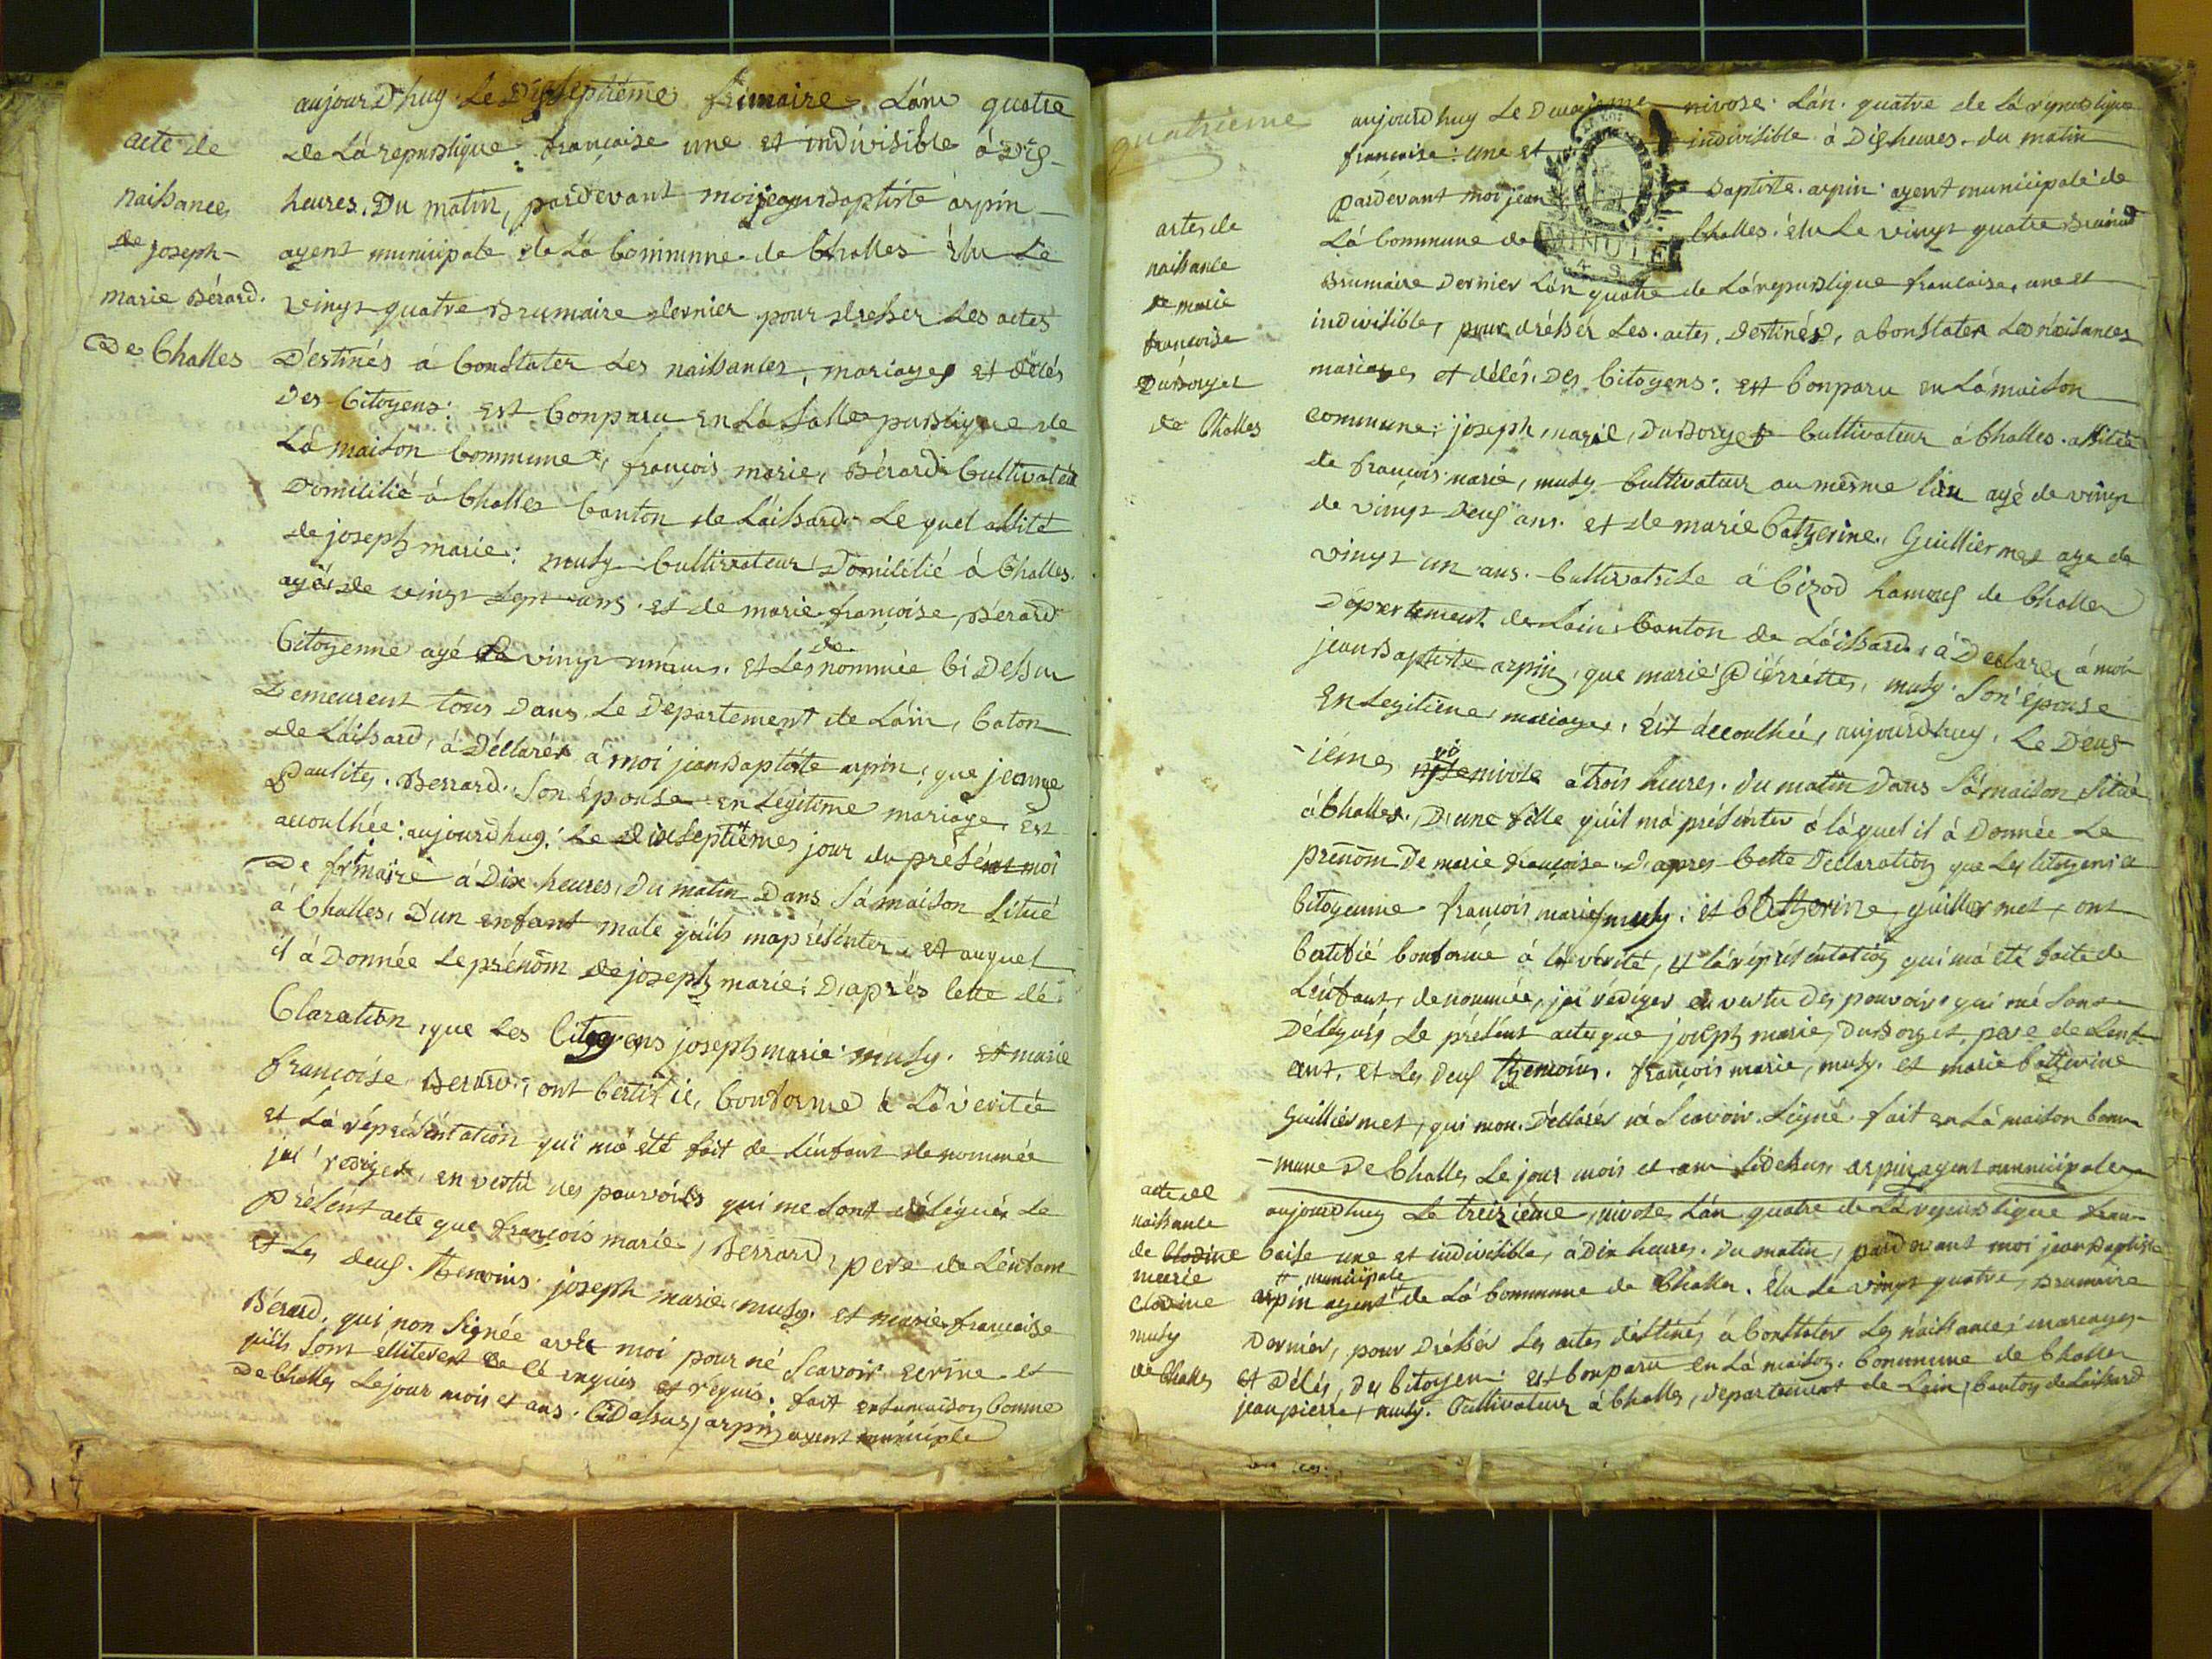 aujourDhuy Le Dixseptiéme frimaire Lánn quatre
acte de
naissances
de joseph-
marie Bérard.
De Challes
de Lá republique française une et indivisible á Dix-
heures. Du matin, pardevant moi jean Baptiste arpin
agent municipale de La Commune de Challes Elu Le
vingt quatre Brumaire dernier pour dresser Les actes
Déstinés á Constater Les naissances, mariages et décés
Des Citoyens: Est Conparu En Lá salle publique de
Lá maison Commune, françois marie, Bérard Cultivateur
Domicilié á Challes Canton de Láissard. Le quel assité
de joseph marie: musy Cultivateur Domicilié á Challes.
agé de vingt sept ans. et de marie françoise, Bérard
Citoyenne agé de vingt ans. et Les de nommée Ci Dessu
Demeurent tous Dans Le Departement de Láin, Caton
de Láissard, á Déclarér á moi jean Baptiste arpin, que jeanne
Paulite, Berrard. Son épouse en Legitime mariage, Est
accouchée: aujourdhuy. Le dixseptiémes jour du présént moi
De frimaire á Dix heures, du matin Dans Sá maison Situé
á Challes, D'un enfant male quils maprésénter, et auquel
il á Donnée Le prénom de joseph marie: D,aprés Cette dé
Claration, que Les Citoyens joseph marie musy. et marie
françoise, Berard, ont Certifié, Conforme á Lá véritée
et Lá réprésentation qui má été fait de Lénfant denommée
jai rediger, en vertu des pouvoirs qui me sont délégués Le
présént acte que françois marie, Berrard, pere de Lénfant
et Les deus. themoins: joseph marie musy. et marie françoise
Bérard, qui non Signée avec moi pour né Scavoir ecrire et
De Challes Le jour mois et ans. CiDessus, arpin agent municiple
quatrieme
aujourdhuy Le Deuxieme nivose. Lán. quatre de Lá republique
françoise: une et indivisible á Dix heures. du matin
pardevant moi jean Baptiste. arpin: agent municipale de
Lá Commune de Challes. élu Le vingt quatre
MINUTE
actes de
naissance
de marie
françoise
DuBorget
de Challes
Brumaire Dernier Lán quatre de Lá republique francaise, une et
indivisible, pour drésser Les. actes, Destinés, a Constater Les naissances
mariages et décés. Des Citoyens: est Conparu en Lá maison
commune: joseph marie, DuBorget Cultivateur á Challes. assité
de françois marie, musy Cultivateur au mesme lieu agé de vingt
de vingt Deus ans. et de marie Catherine, Guilliermet age de
vingt un ans. Cultivatrise á Cizod hamaus de Challes
Département de Lain, Canton de Láissard, á Declarer á moi
jean Baptiste arpin, que marie Piérrette, musy. Son épouse
En Legitime mariages, Est accouchée, aujourdhuy, Le Deus-
-iéme, nivose á trois heures. du matin dans Sá maison Situé
á Challes. D,une fille quil má présénter á láquel il á Donnée Le
prénom De marie françoise. D,apres Cette Declaration que Les Citoyens et
Citoyenne françois marie musy. et Catherine, guillermet, ont
Certifié Conforme á la vérité, et lá réprésentation qui má été faite de
Lénfant, denommée, jai rédiger en vertu Des pouvoirs qui mé sont
Délégués Le présént acte que joseph marie, DuBorget, pere de Lenf-
ant. et Les deus themoins. françois marie, musy. et marie Catherine
Guilliermet, qui mon. Déclarés né Scavoir. Signé. fait en Lá maison Com-
-mune De Challes Le jour mois et an Cidessus arpin agent municipale
acte de
naissance
de Clodine
marie
Clodine
musy
de Challes
aujourdhuy Le treiziéme, nivose, Lán quatre de Lá republique fran-
caise une et indivisible, á Dix heures. du matin, pardevant moi jean Baptiste
arpin agent municipale de Lá Commune de Challes. élu Le vingt quatre, Brumaire
Dernier, pour Drésser Les actes déstinés á Constater Les naissances mariages
et Décés, des Citoyen: est Conparu en Lá maison. Commune de Challes
jean pierre, musy. Cultivateur á Challes, departement de Lain, Canton de Laissard